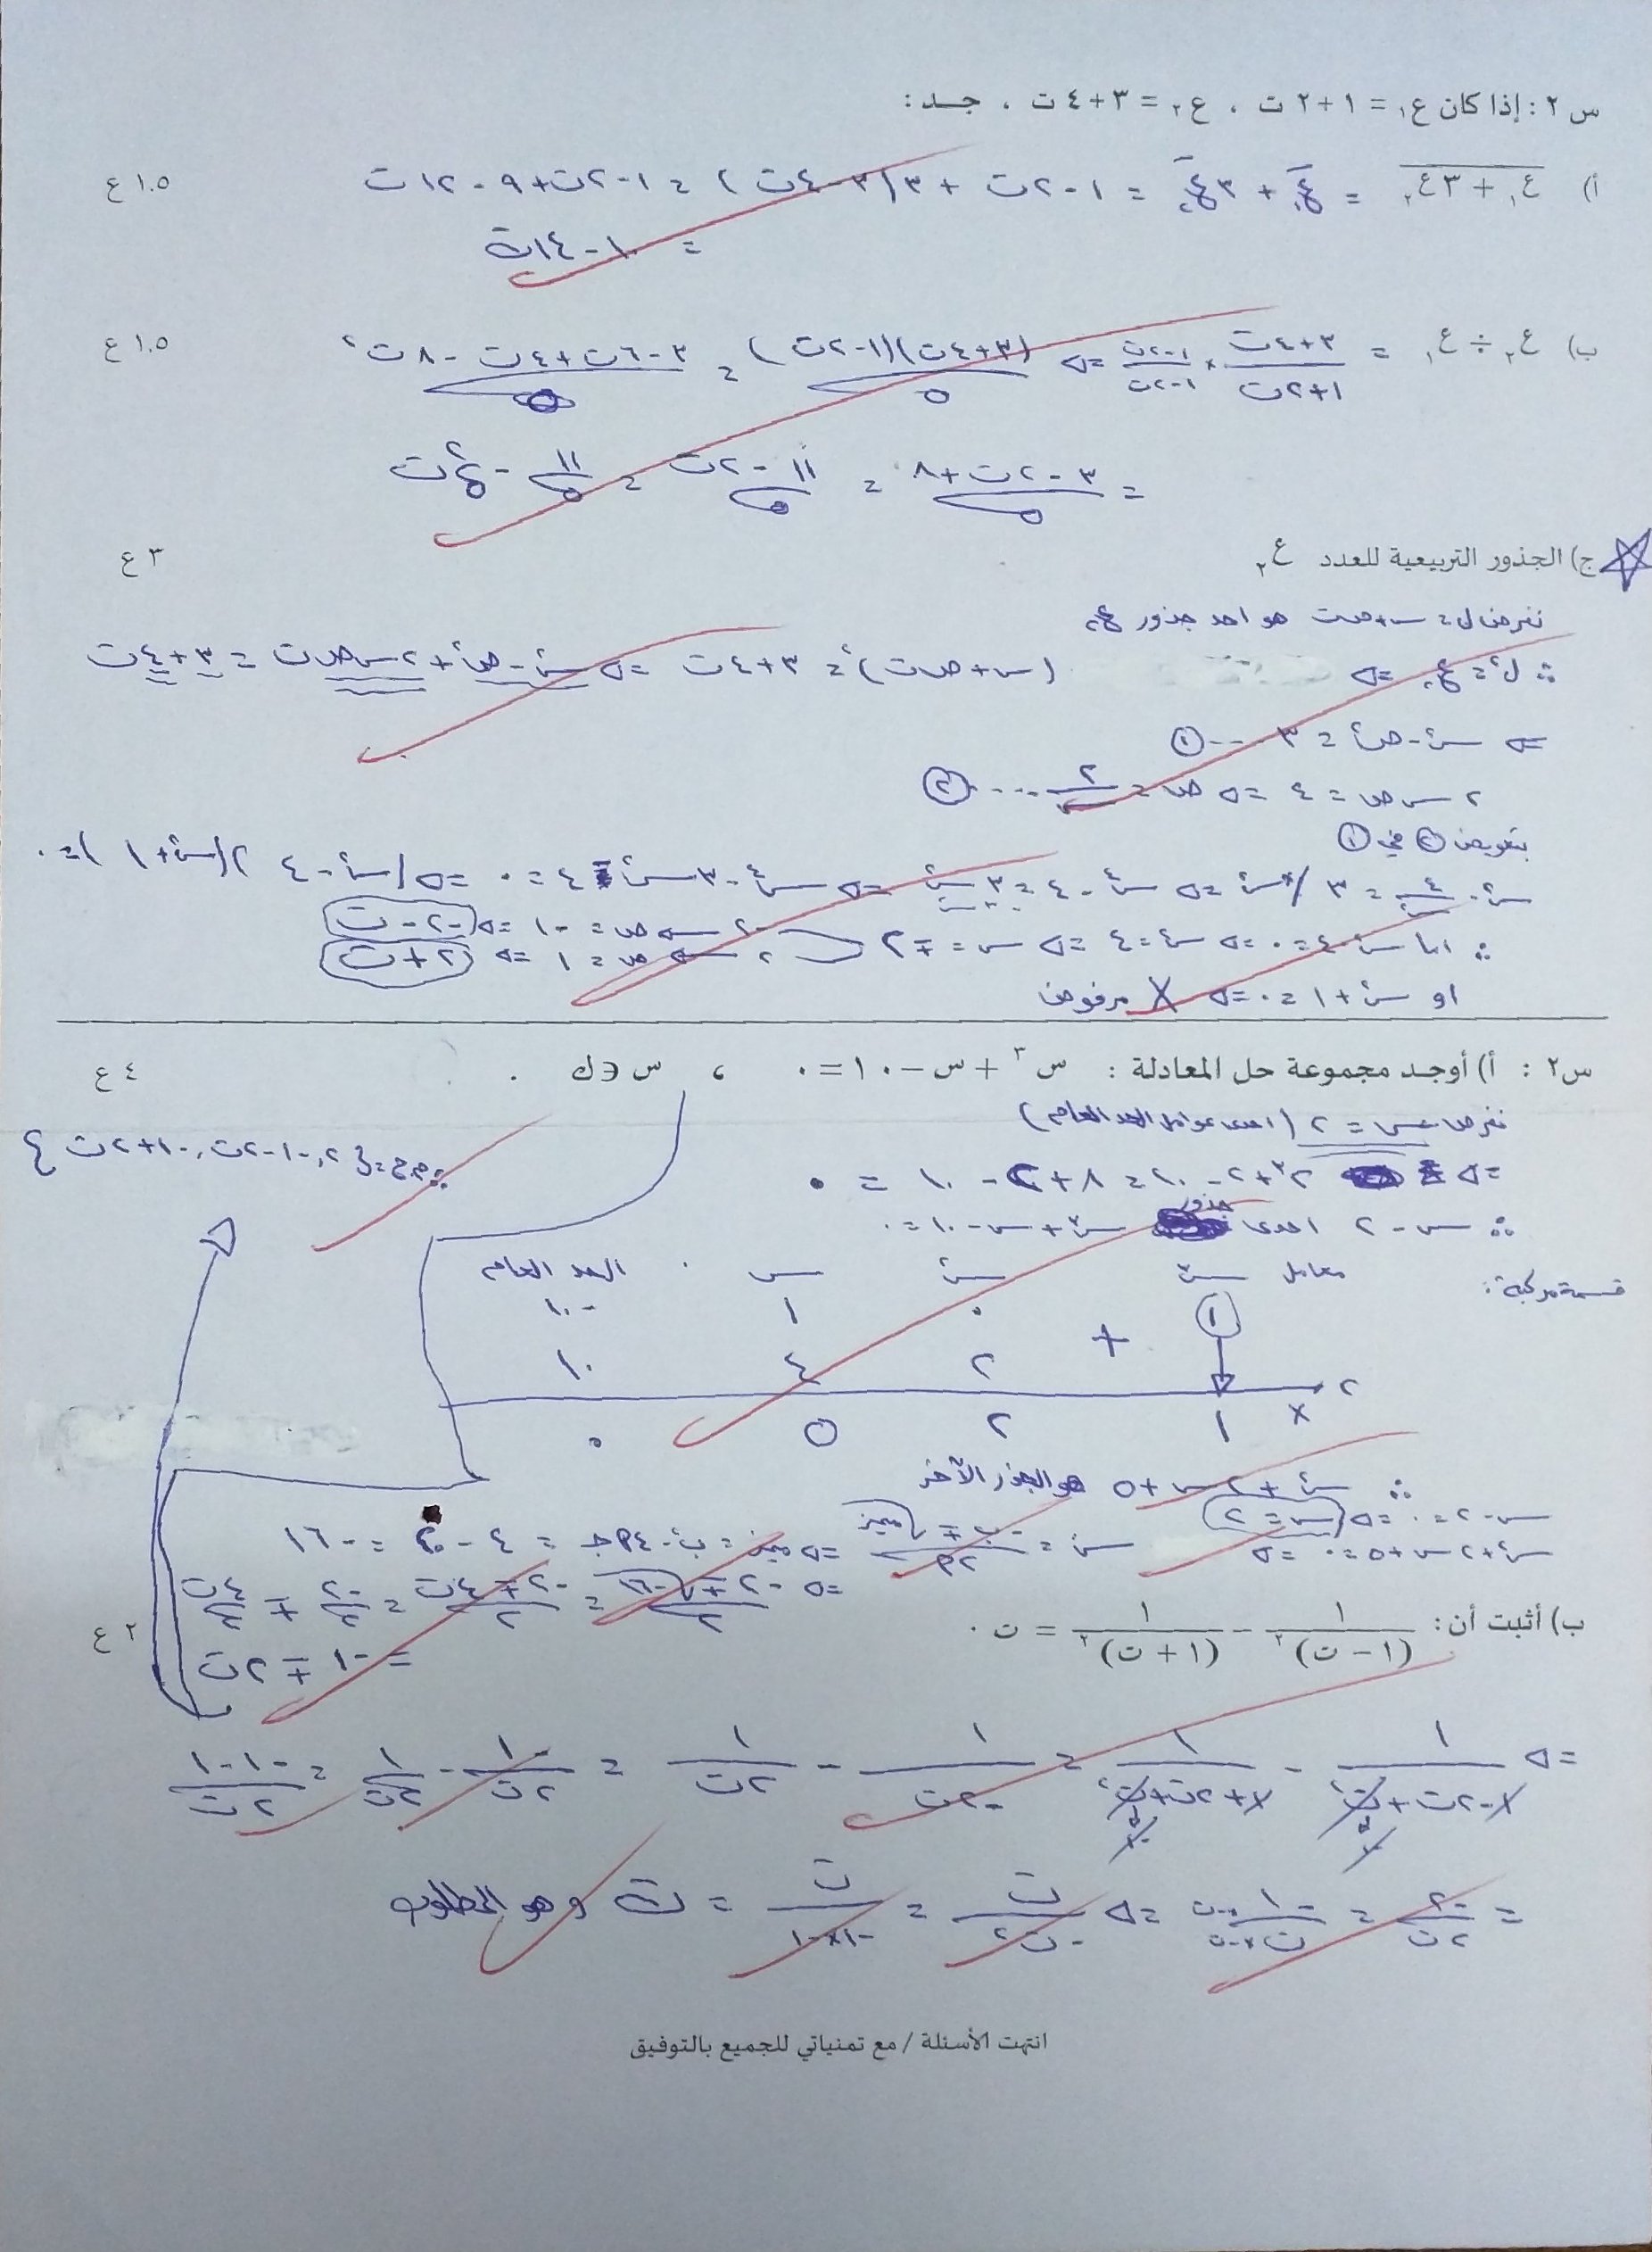 س٢ : إذا كان ع₁ = ١ + ٢ ت ، ع₂ = ٣ + ٤ ت ، جـد :
أ) ع₁ + ٣ع₂ = ع₁ + ٣ع₂ = ١ - ٢ت + ٣(٣ - ٤ت) = ١ - ٢ت + ٩ - ١٢ت ١.٥ ع
= ١٠ - ١٤ت
ب) ع₂ ÷ ع₁ = ٣+٤ت / ١+٢ت × ١-٢ت / ١-٢ت ⇐ (٣+٤ت)(١-٢ت) / ٥ = ٣ - ٦ت + ٤ت - ٨ت² / ٥ ١.٥ ع
= ٣ - ٢ت + ٨ / ٥ = ١١ - ٢ت / ٥ = ١١/٥ - ٢/٥ ت
ج) الجذور التربيعية للعدد ع₂ ٣ ع
نفرض ل = س + ص ت هو احد جذور ع₂
∴ ل² = ع₂ ⇐ (س + ص ت)² = ٣ + ٤ت ⇐ س² - ص² + ٢ س ص ت = ٣ + ٤ت
⇐ س² - ص² = ٣ --- ①
٢ س ص = ٤ ⇐ ص = ٢/س .... ②
بتعويض ② في ①
س² - ٤/س² = ٣ /×س² ⇐ س⁴ - ٤ = ٣س² ⇐ س⁴ - ٣س² - ٤ = ٠ ⇐ (س² - ٤)(س² + ١) = ٠
∴ اما س² - ٤ = ٠ ⇐ س² = ٤ ⇐ س = ∓٢
-٢ ← ص = -١ ⇐ -٢ - ت
٢ ← ص = ١ ⇐ ٢ + ت
او س² + ١ = ٠ ⇐ X مرفوض
س٢ : أ) أوجد مجموعة حل المعادلة : س³ + س - ١٠ = ٠ ، س ∈ ك . ٤ ع
نفرض س = ٢ (احدى عوامل الحد العام)
⇐ ٢³ + ٢ - ١٠ = ٨ + ٢ - ١٠ = ٠
∴ م.ح = { ٢ ، -١ - ٢ت ، -١ + ٢ت }
∴ س - ٢ احدى جذور س³ + س - ١٠ = ٠
قسمة مركبة :
معامل س³ س² س الحد العام
١ ٠ ١ -١٠
+ ٢ ٤ ١٠
٢ × ١ ٢ ٥ ٠
∴ س² + ٢س + ٥ هو الجذر الآخر
س - ٢ = ٠ ⇐ س = ٢
س² + ٢س + ٥ = ٠ ⇐ س = -ب ∓ √مميز / ٢أ ⇐ مميز = ب² - ٤أجـ = ٤ - ٢٠ = -١٦
⇐ -٢ ∓ √-١٦ / ٢ = -٢ ∓ ٤ت / ٢ = -٢/٢ ∓ ٤ت/٢
= -١ ∓ ٢ت
ب) أثبت أن : ١ / (١ - ت)² - ١ / (١ + ت)² = ت . ٢ ع
⇐ ١ / ١ - ٢ت + ت² - ١ / ١ + ٢ت + ت² = ١ / -٢ت - ١ / ٢ت = -١ / ٢ت - ١ / ٢ت = -١ - ١ / ٢ت
= -٢ / ٢ت = -١ / ت × -ت / -ت ⇐ ت / -ت² = ت / -١×-١ = ت وهو المطلوب
انتهت الأسئلة / مع تمنياتي للجميع بالتوفيق